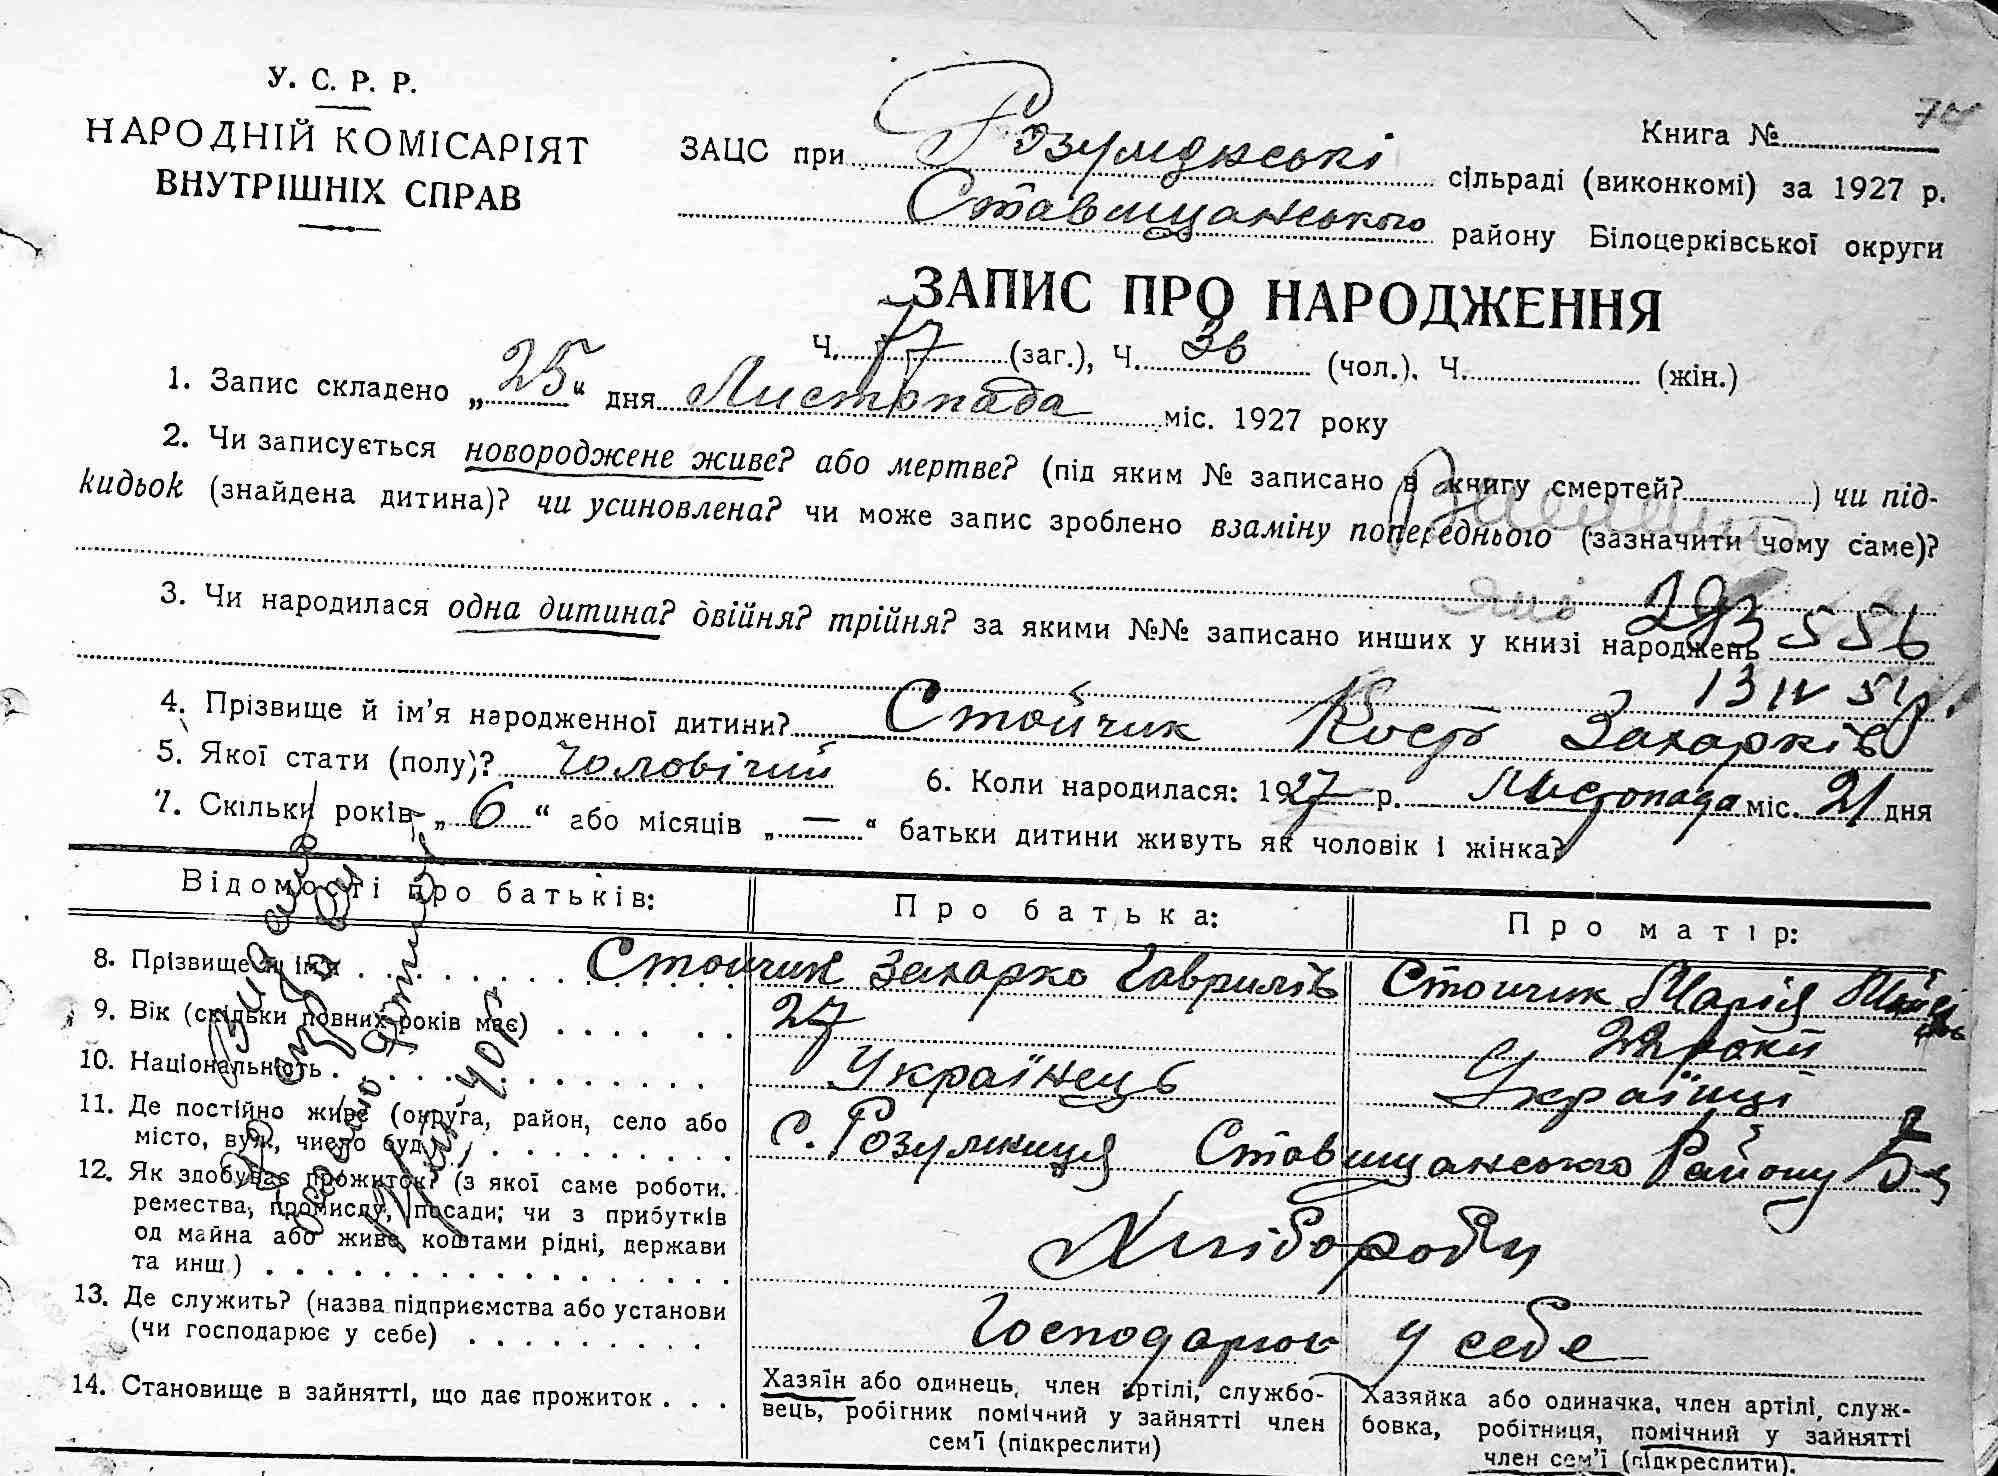 У. С. Р. Р.
НАРОДНІЙ КОМІСАРІЯТ
ВНУТРІШНІХ СПРАВ
Книга №
ЗАЦС при Розуменські сільраді (виконкомі) за 1927 р.
Ставищанського району Білоцерківської округи
ЗАПИС ПРО НАРОДЖЕННЯ
Ч. 77 (заг.), Ч. 36 (чол.), Ч. (жін.)
1. Запис складено „25“ дня Листопада міс. 1927 року
2. Чи записується новороджене живе? або мертве? (під яким № записано в книгу смертей? ) чи під-
кидьок (знайдена дитина)? чи усиновлена? чи може запис зроблено взаміну попереднього (зазначити чому саме)?
3. Чи народилася одна дитина? двійня? трійня? за якими №№ записано инших у книзі народжень
293556
13 IV 51 р.
4. Прізвище й ім'я народженної дитини? Стойчик Захарків
5. Якої стати (полу)? Чоловічий 6. Коли народилася: 1927 р. Листопада міс. 21 дня
7. Скільки років „6“ або місяців „—“ батьки дитини живуть як чоловік і жінка?
Відомості про батьків: Про батька: Про матір:
8. Прізвище й ім'я Стойчик Захарко Гаврилів Стойчик Марія
9. Вік (скільки повних років має) 27 22 роки
10. Національність Українець Українці
11. Де постійно живе (округа, район, село або
місто, вул., число буд.) с. Розумниця Ставищанського Району Б-Ц
12. Як здобуває прожиток? (з якої саме роботи,
ремества, промислу, посади; чи з прибутків
од майна або живе коштами рідні, держави
та инш.) Хлібороби
13. Де служить? (назва підприємства або установи
(чи господарює у себе) Господарює у себе
14. Становище в зайнятті, що дає прожиток
Хазяїн або одинець, член артілі, службо-
вець, робітник помічний у зайнятті член
сем'ї (підкреслити)
Хазяйка або одиначка, член артілі, служ-
бовка, робітниця, помічний у зайнятті
член сем'ї (підкреслити).